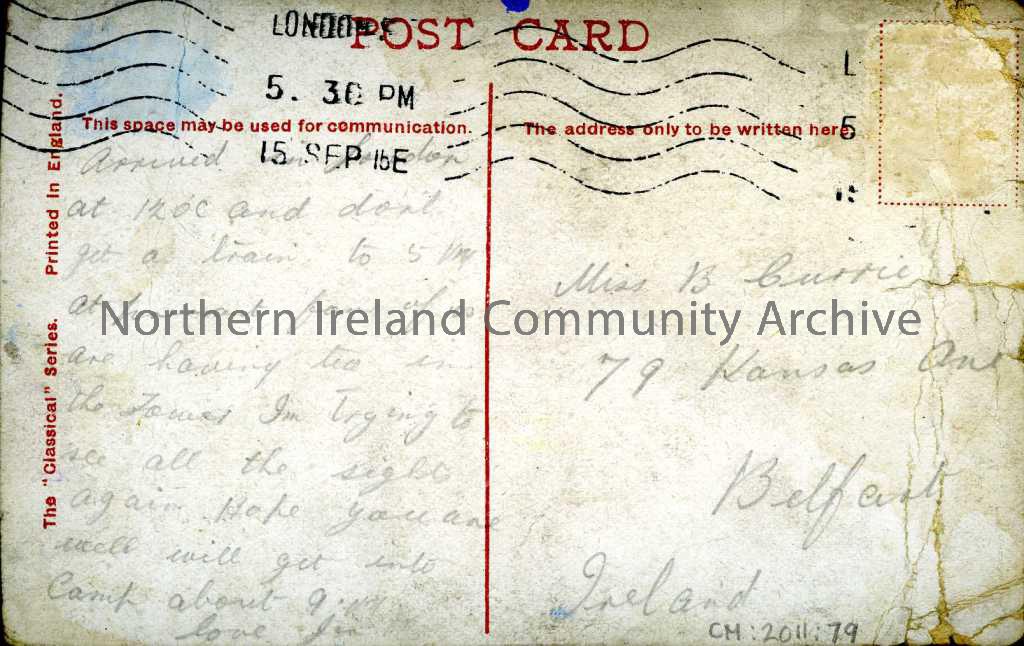 LONDON
POST CARD
5. 30 PM
This space may be used for communication.
The address only to be written here.
15 SEP 15 E
L
5
The "Classical" Series. Printed in England.
Arrived in London
at 12 OC and don't
get a train to 5 PM
at
are having tea in
the Tower Im trying to
see all the sight
again Hope you are
well will get into
Camp about 9.
love
Miss B Currie
79 Kansas Ave
Belfast
Ireland
Northern Ireland Community Archive
CM:2011:79